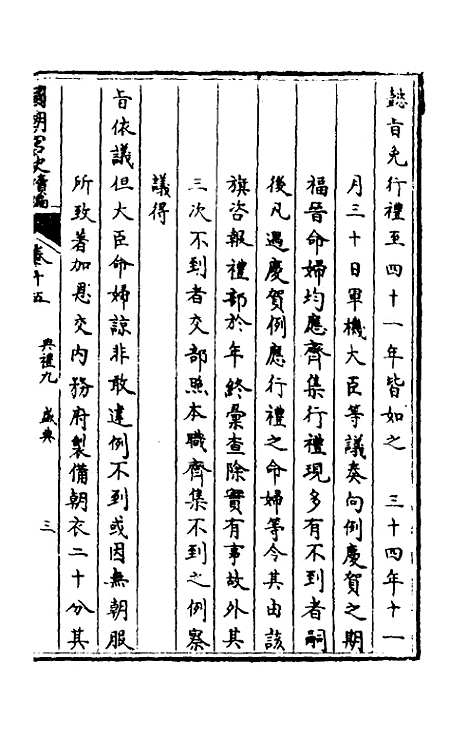 懿旨免行禮至四十一年皆如之　三十四年十一
月三十日軍機大臣等議奏向例慶賀之期
福晉命婦均應齊集行禮現多有不到者嗣
後凡遇慶賀例應行禮之命婦等令其由該
旗咨報禮部於年終彙查除實有事故外其
三次不到者交部照本職齊集不到之例察
議得
旨依議但大臣命婦諒非敢違例不到或因無朝服
所致著加恩交內務府製備朝衣二十分其
國朝宮史續編　卷十五　典禮九　盛典　三